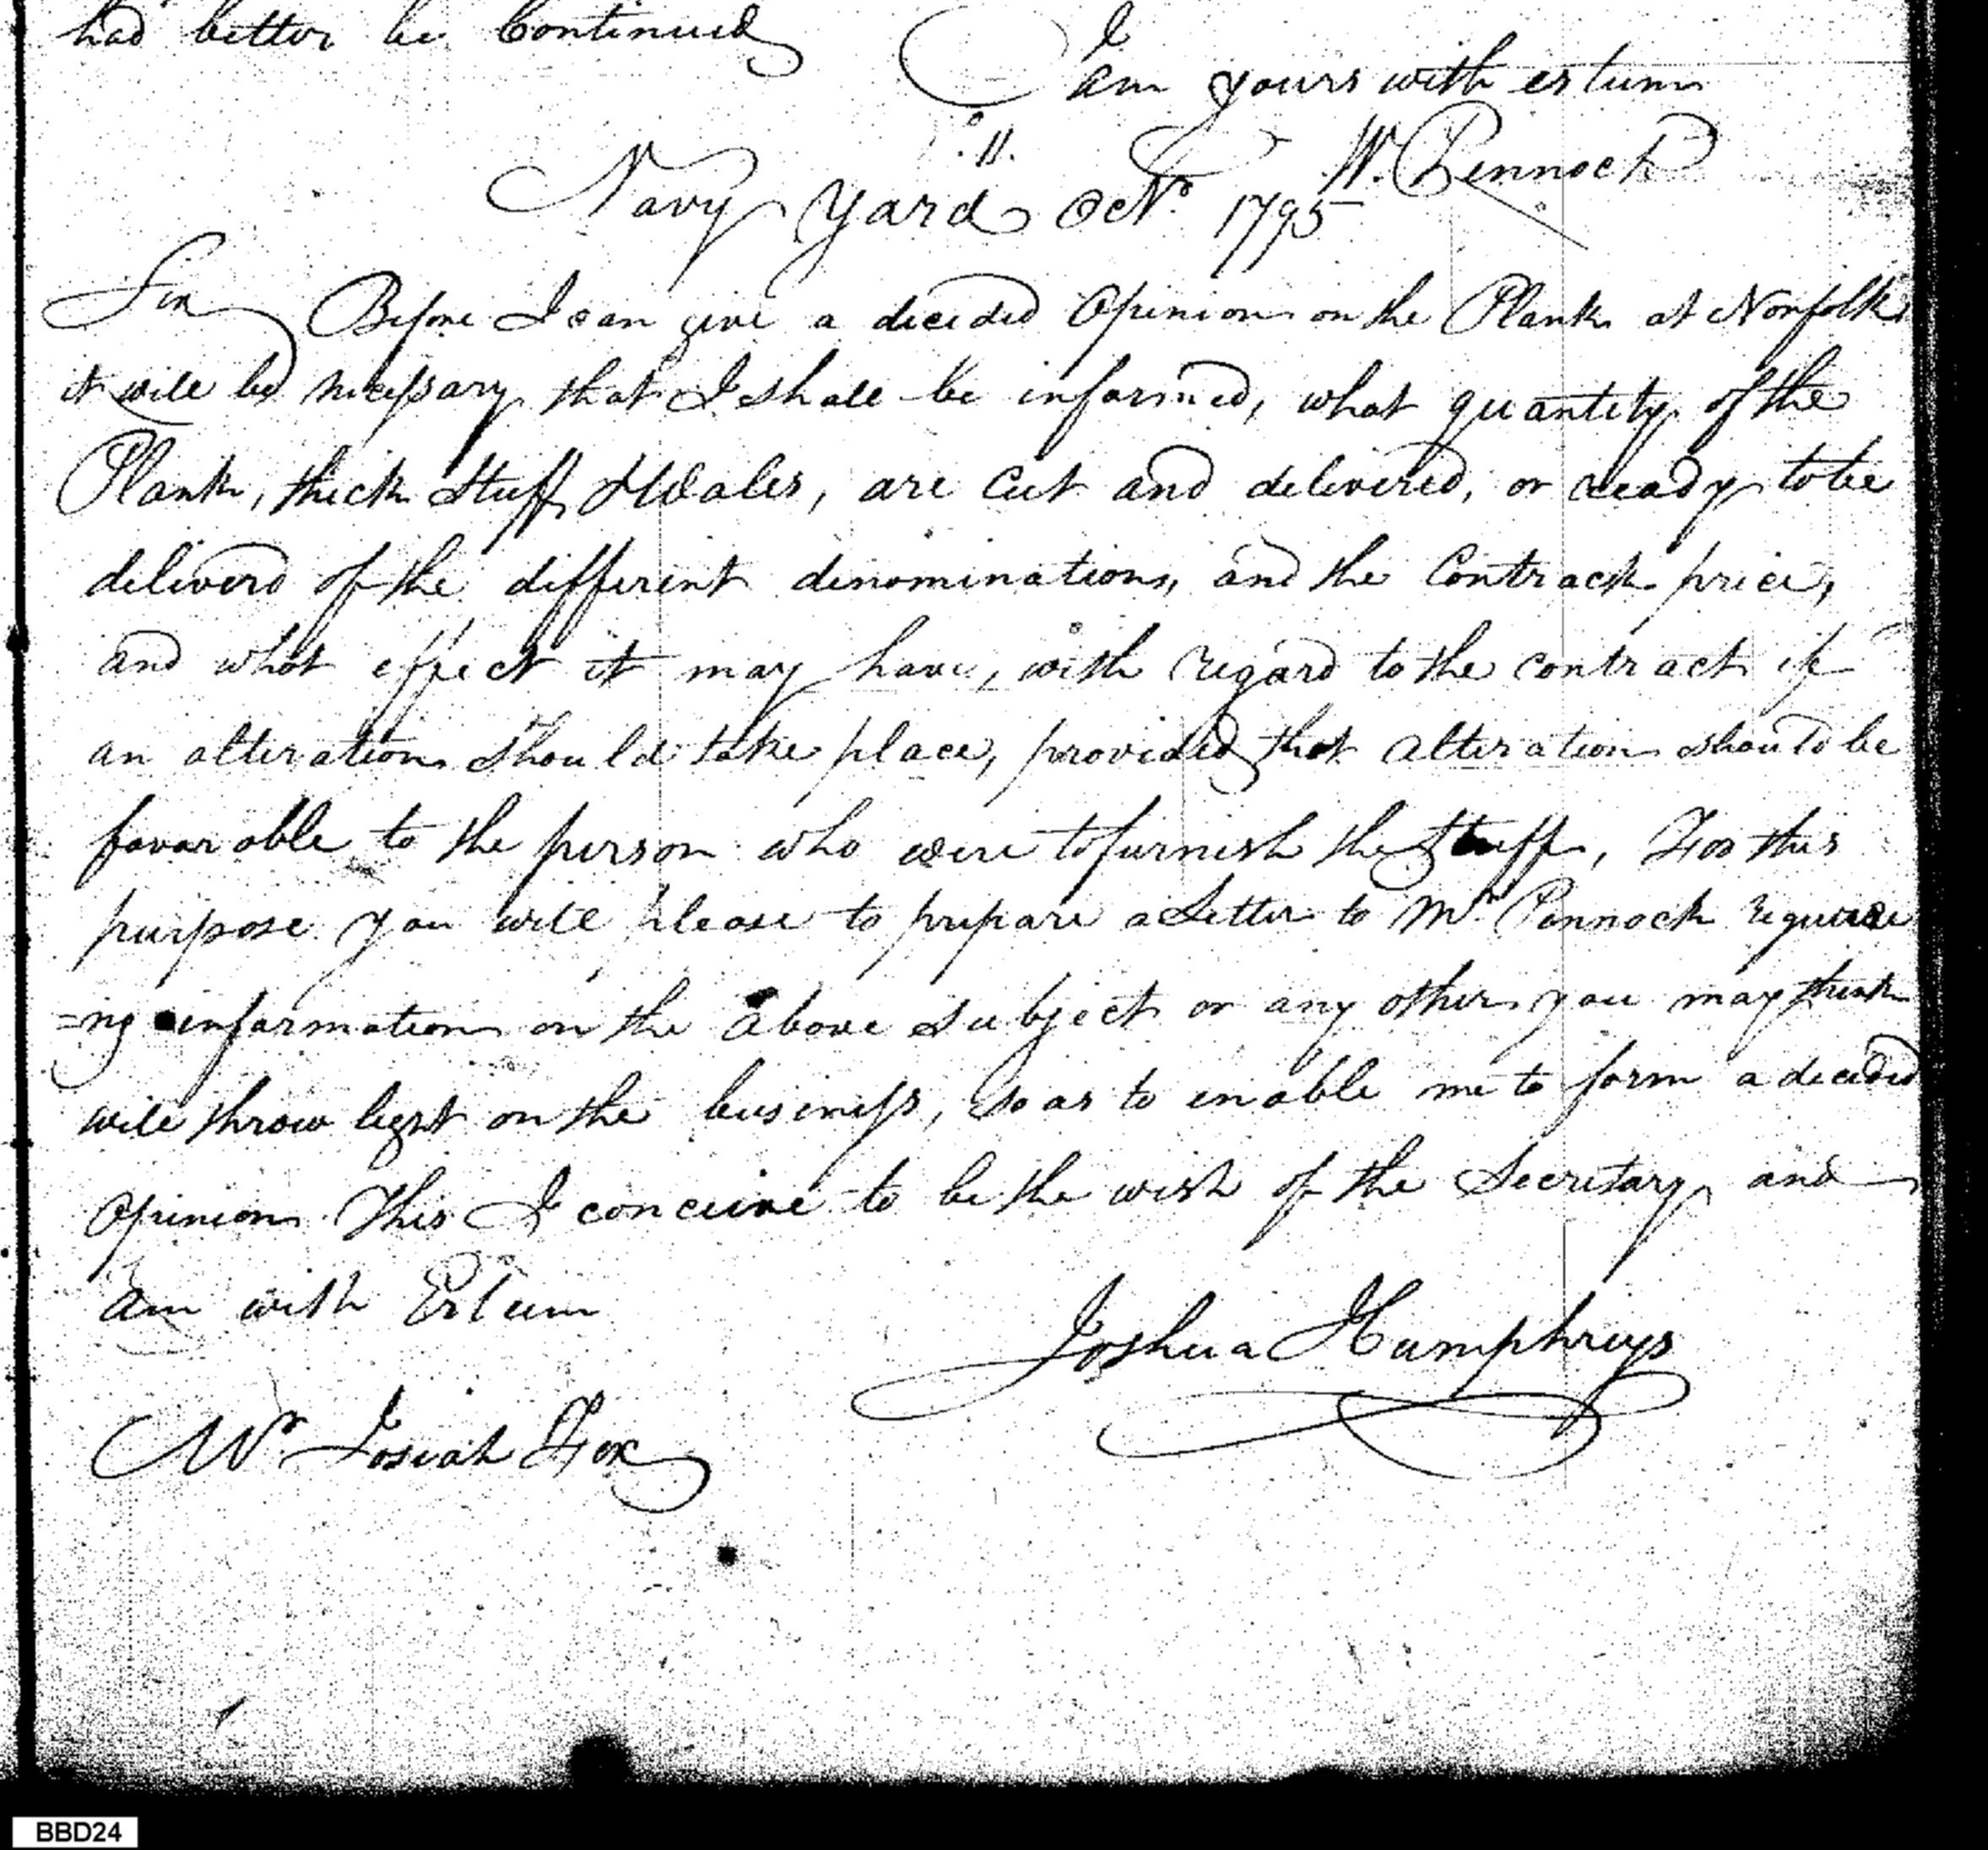 had better be Continued
I
am yours with esteem
W. Pennock
11.
Navy Yard Octr. 1795
Sir Before I can give a decided Opinion on the Plank at Norfolk
it will be necessary that I shall be informed, what quantity of the
Plank, thick Stuff & Wales, are Cut and delivered, or ready to be
deliverd of the different denominations, and the Contract price,
and what effect it may have, with regard to the contract if
an alteration should take place, provided that alteration should be
favorable to the person who were to furnish the Stuff, For this
purpose you will please to prepare a Letter to Mr. Pennock requiree
=ng information on the above subject or any other you may think
will throw light on the business, so as to enable me to form a decided
Opinion This I conceive to be the wish of the Secretary and
am with Esteem
Joshua Humphreys
Mr Josiah Fox
BBD24